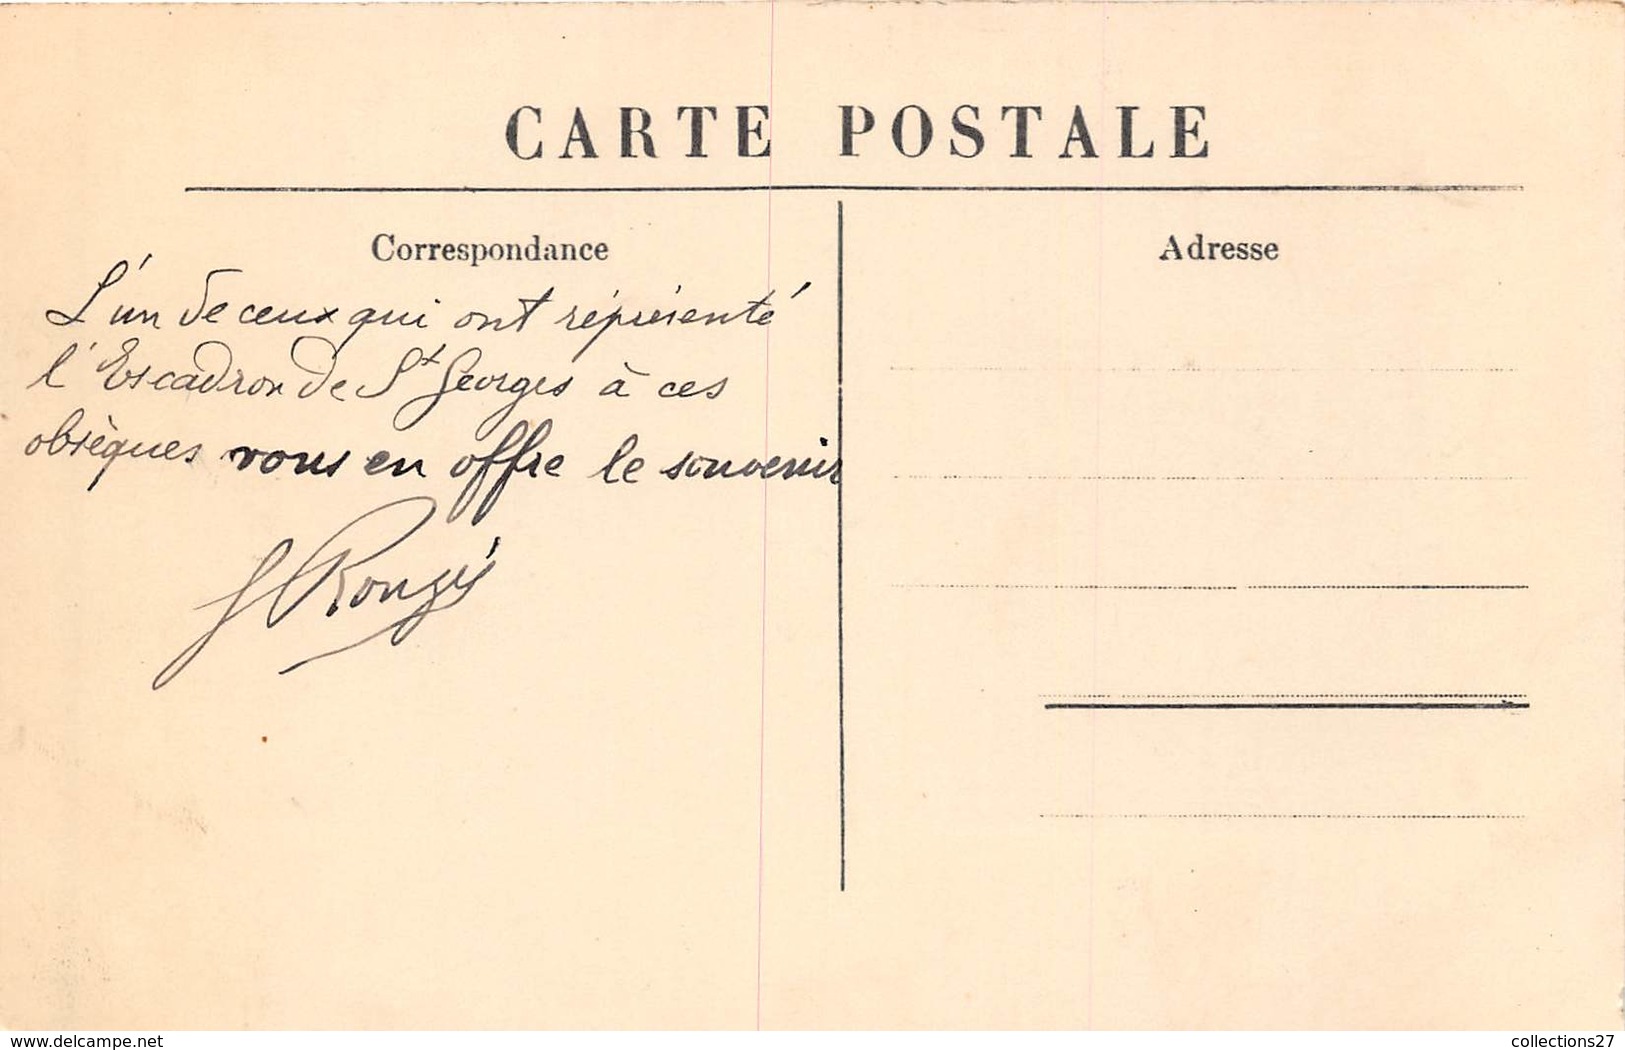 CARTE POSTALE
Correspondance
Adresse
L'un de ceux qui ont réprésenté
l'Escadron de St Georges à ces
obsèques vous en offre le souvenir
www.delcampe.net
collections27